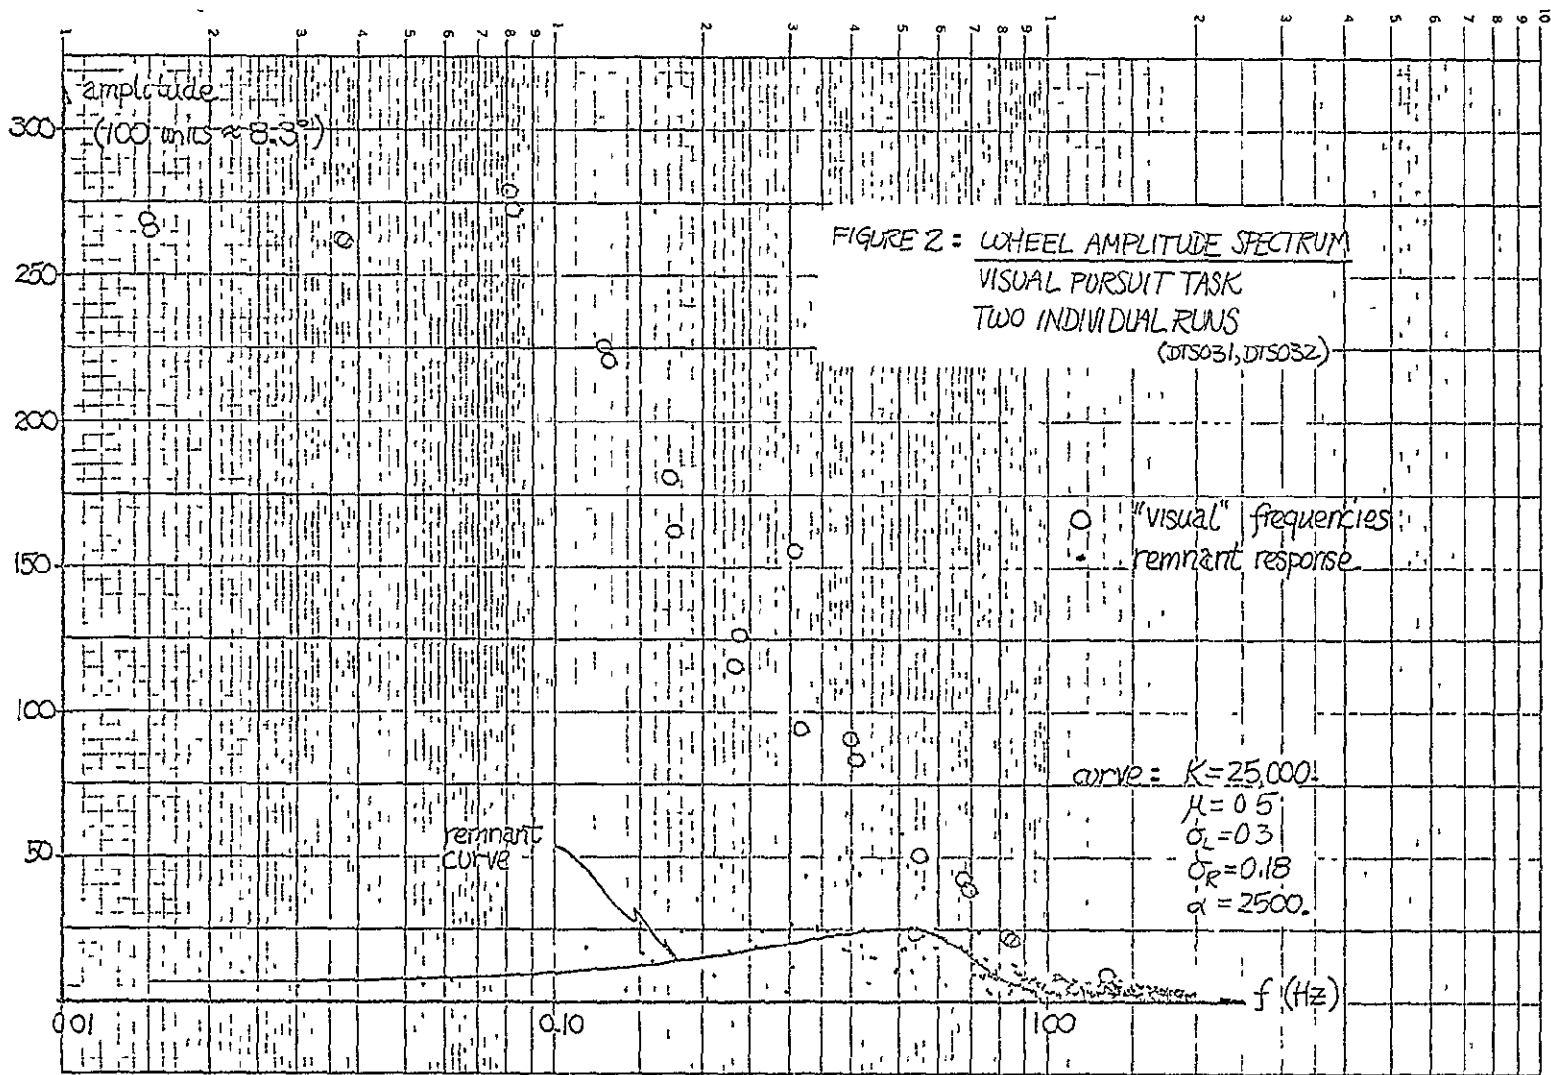 1 2 3 4 5 6 7 8 9 1 2 3 4 5 6 7 8 9 1 2 3 4 5 6 7 8 9 10
amplitude
(100 units ≈ 8.3°)
300
250
200
150
100
50
FIGURE 2: WHEEL AMPLITUDE SPECTRUM
VISUAL PURSUIT TASK
TWO INDIVIDUAL RUNS
(DTS031, DTS032)
"visual" frequencies
remnant response
curve: K=25,000.
μ=0 5
σL=0 3
σR=0.18
α=2500.
remnant
curve
f (Hz)
0 01
0.10
1 00